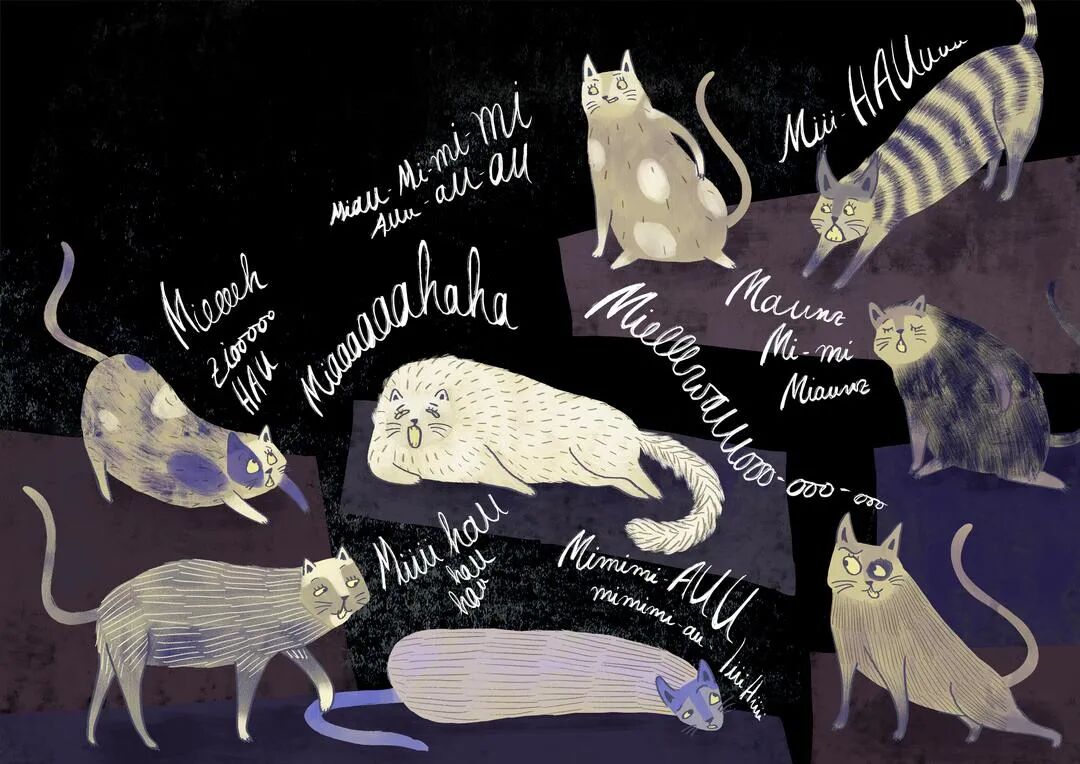 Miau-Mi-mi-mi
Auu-au-au
Miii-HAUuuu
Mieeeh
ziooooo
HAU
Miaaaaaahaha
Mieeeerwauuooo-ooo-ooo
Maunz
Mi-mi
Miaunz
Miiii hau
hau
hau
Mimimi-AUU
mimimi-au
Iiii Hiiii